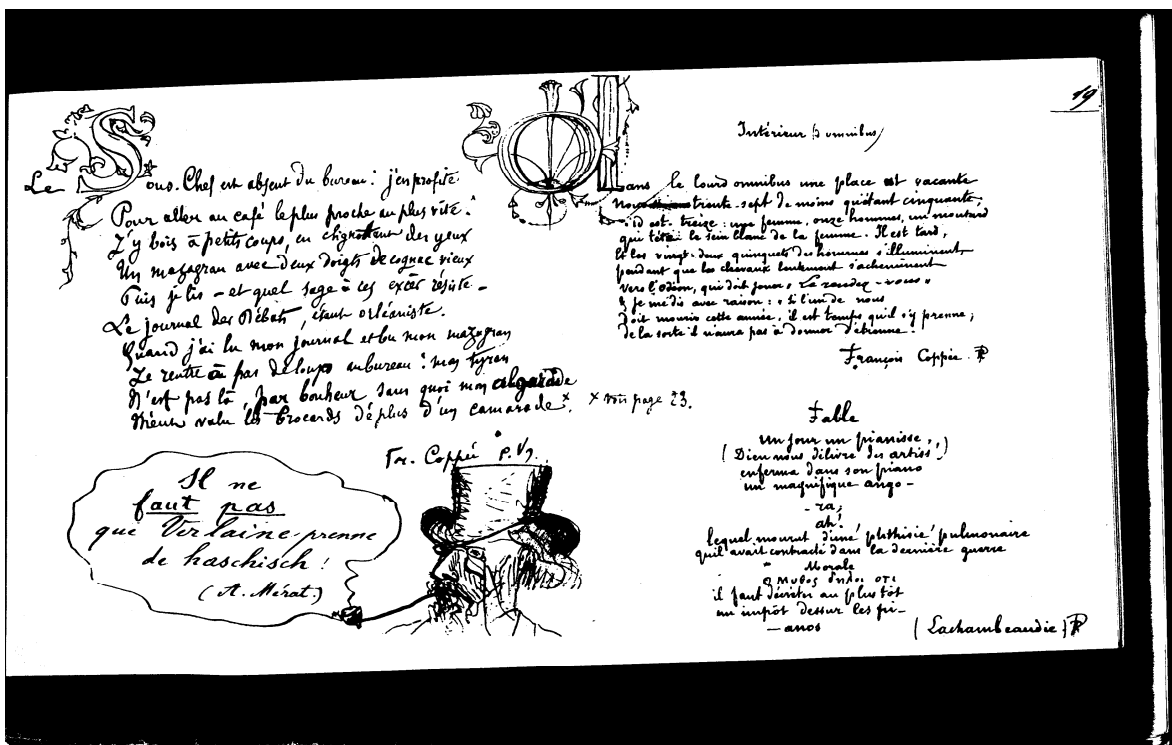 19
Le Sous-Chef est absent du bureau : j'en profite
Pour aller au café le plus proche au plus vite.
J'y bois à petits coups, en clignottant des yeux
Un mazagran avec deux doigts de cognac vieux
Puis je lis – et quel sage à ces excès résiste –
Le journal des Débats, étant orléaniste.
Quand j'ai lu mon journal et bu mon mazagran
Je rentre à pas de loup au bureau : mon tyran
N'est pas là, par bonheur sans quoi mon algarade
Mieux valu les brocards de plus d'un camarade ˣ. x voir page 23.
Fr. Coppée P. V.
Il ne
faut pas
que Verlaine prenne
de haschisch !
(A. Mérat.)
Intérieur (d'omnibus)
Dans le lourd omnibus une place est vacante
trente-sept de moins qu'étant cinquante,
id est : treize : une femme, onze hommes, un moutard
qui tétait le sein blanc de la femme. Il est tard,
Et les vingt-deux quinquets des hommes s'illuminent,
pendant que les chevaux lentement s'acheminent
vers l'Odéon, qui doit jouer « Le rendez-vous »
& je me dis avec raison : « si l'un de nous
Doit mourir cette année, il est temps qu'il s'y prenne ;
de la sorte il n'aura pas à donner d'étrenne. »
François Coppée. PR
Fable
Un jour un pianisse,
(Dieu nous délivre des artiss' !)
enferma dans son piano
un magnifique ango-
-ra;
ah!
lequel mourut d'une phthisie pulmonaire
qu'il avait contracté dans la dernière guerre
Morale
Ο μυθος δηλοι οτι
il faut décréter au plus tôt
un impôt dessur les pi-
-anos
(Lachambeaudie) PR